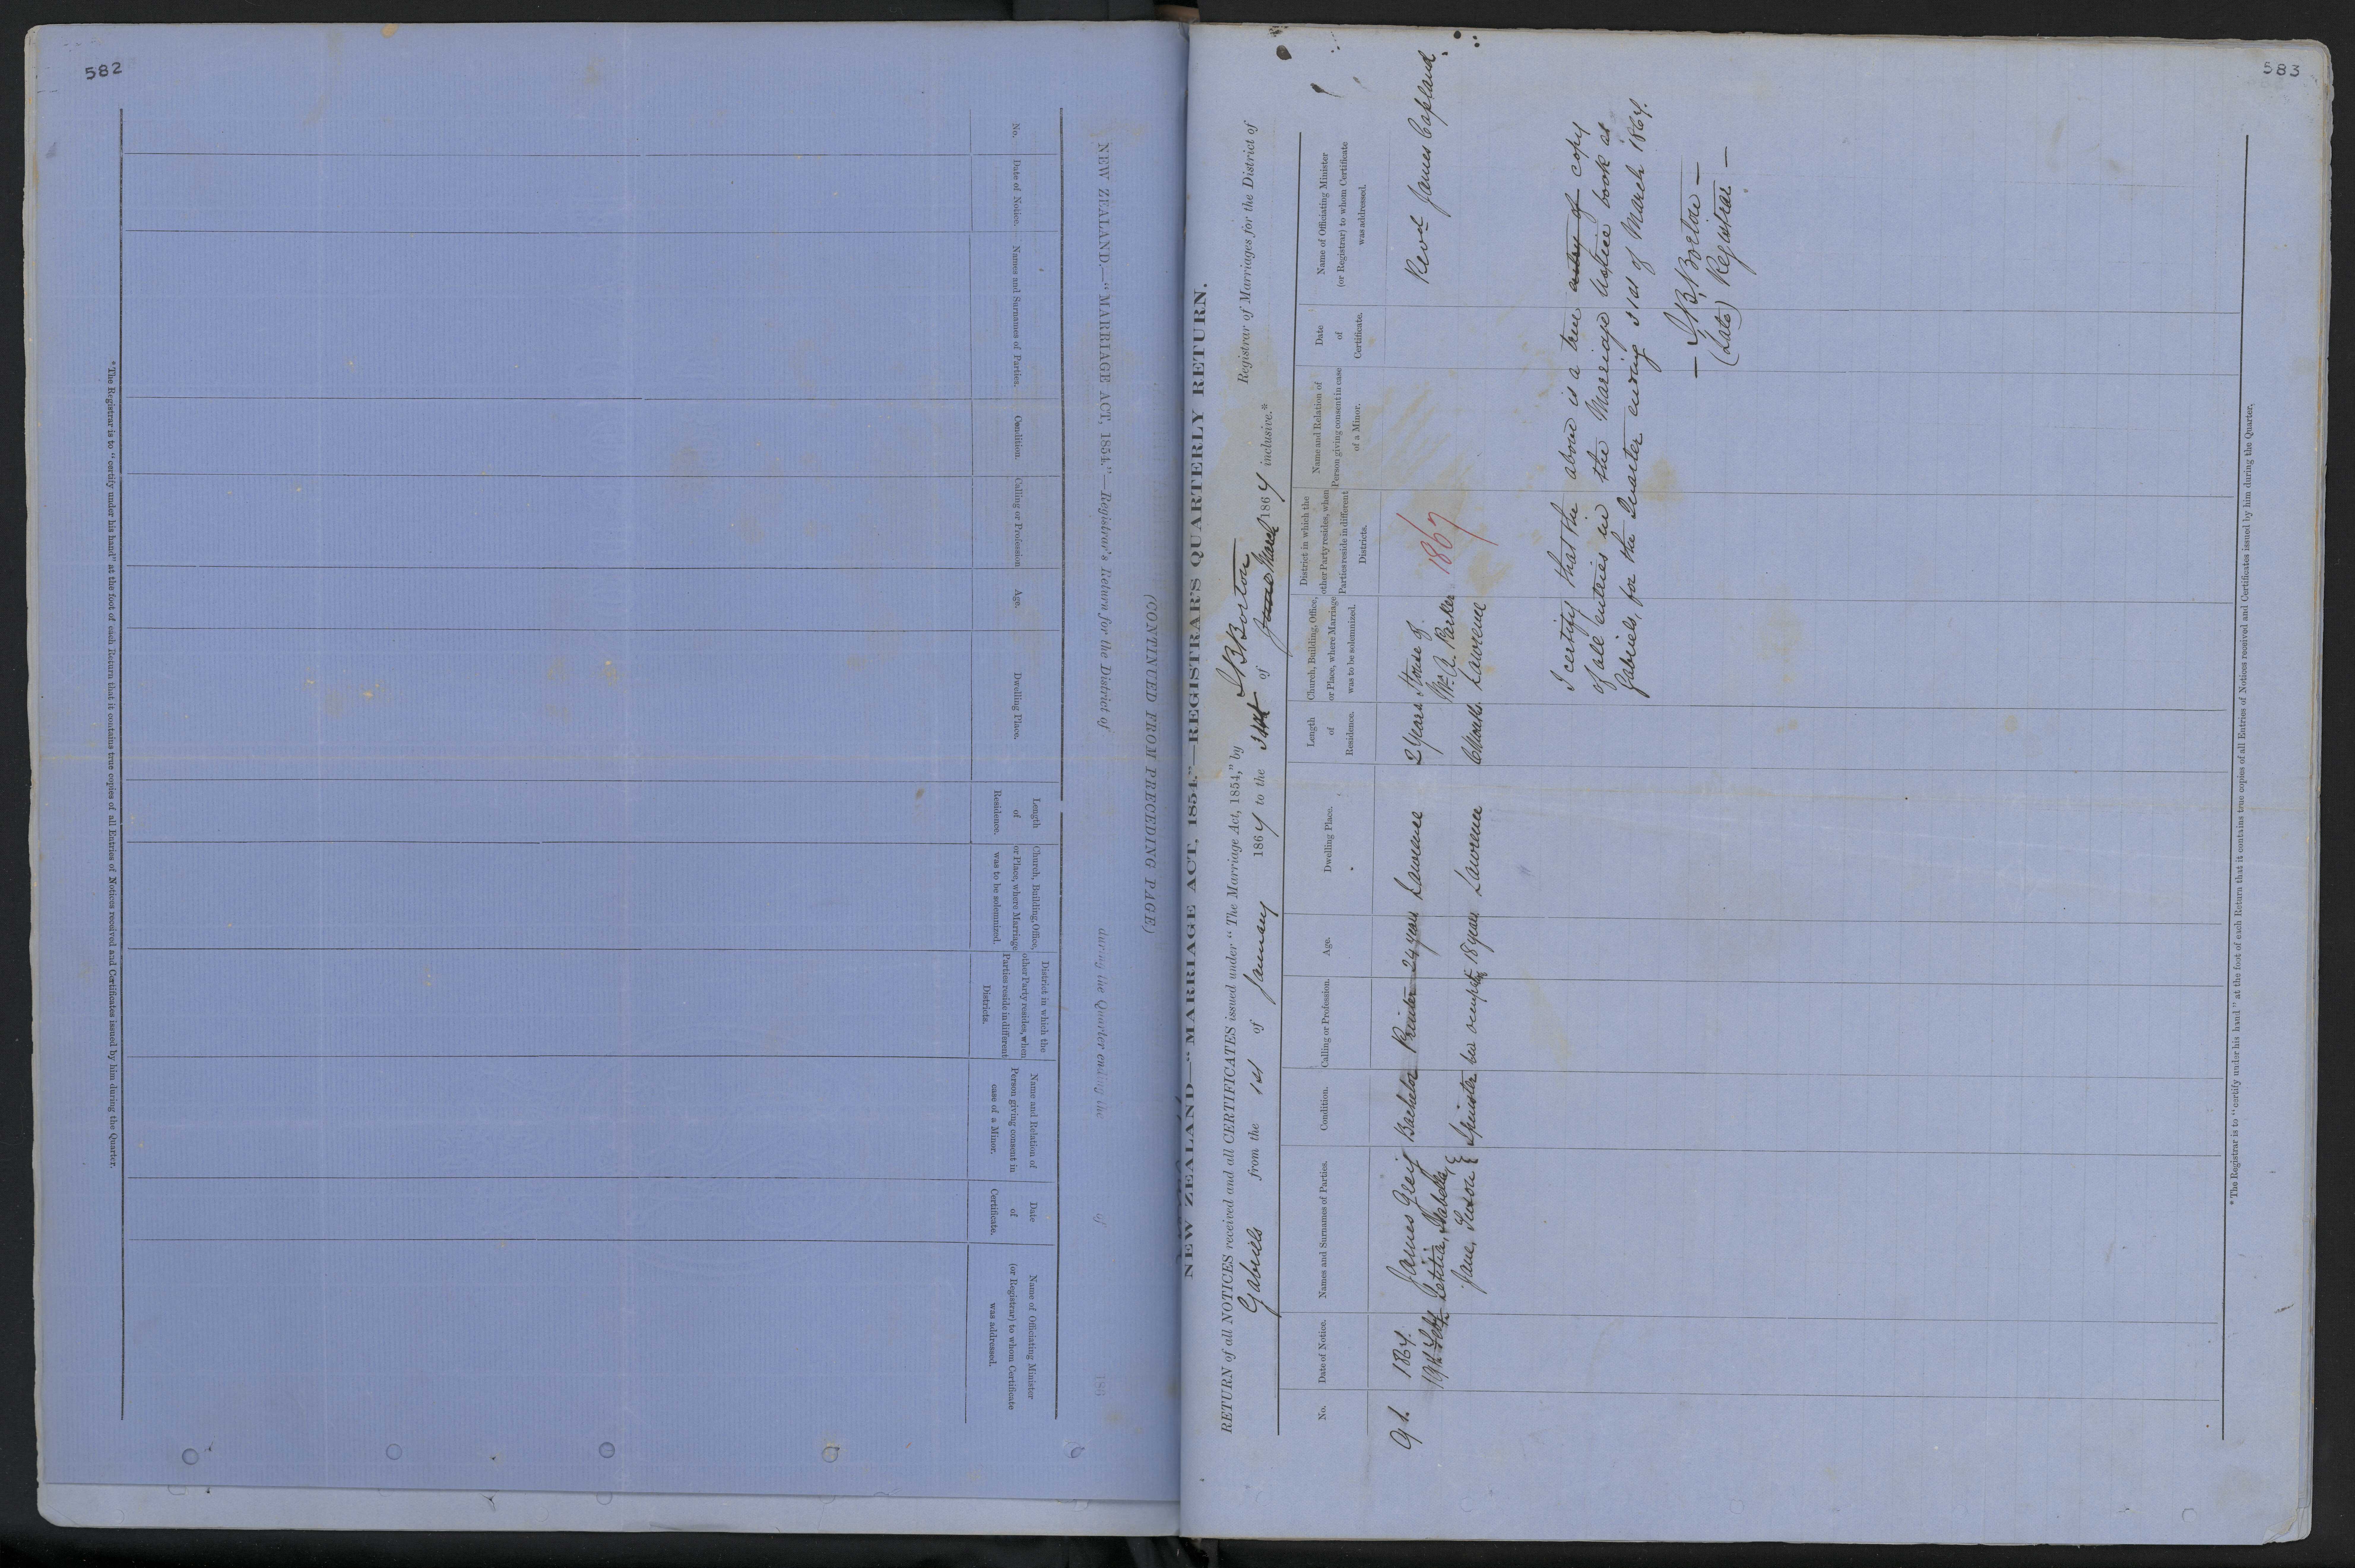 582
(CONTINUED FROM PRECEDING PAGE)
NEW ZEALAND.—"MARRIAGE ACT, 1854."—Registrar's Return for the District of during the Quarter ending the of 186
No.
Date of Notice.
Names and Surnames of Parties.
Condition.
Calling or Profession
Age.
Dwelling Place.
Length
of
Residence.
Church, Building, Office,
or Place, where Marriage
was to be solemnized.
District in which the
other Party resides, when
Parties reside in different
Districts.
Name and Relation of
Person giving consent in
case of a Minor.
Date
of
Certificate.
Name of Officiating Minister
(or Registrar) to whom Certificate
was addressed.
*The Registrar is to "certify under his hand" at the foot of each Return that it contains true copies of all Entries of Notices received and Certificates issued by him during the Quarter.
583
NEW ZEALAND—"MARRIAGE ACT, 1854."—REGISTRAR'S QUARTERLY RETURN.
RETURN of all NOTICES received and all CERTIFICATES issued under "The Marriage Act, 1854," by J B Borton Registrar of Marriages for the District of
Gabriels from the 1st of January 1867 to the 31st of June March 1867 inclusive.*
No.
Date of Notice.
Names and Surnames of Parties.
Condition.
Calling or Profession.
Age.
Dwelling Place.
Length
of
Residence.
Church, Building, Office,
or Place, where Marriage
was to be solemnized.
District in which the
other Party resides, when
Parties reside in different
Districts.
Name and Relation of
Person giving consent in case
of a Minor.
Date
of
Certificate.
Name of Officiating Minister
(or Registrar) to whom Certificate
was addressed.
91. 1867. James Greig Bachelor Printer 24 years Lawrence 2 years House of Revd James Copland.
19th Feby Letitia, Isabella, Mr A. Parker 1867
Jane, Spinster 18 years Lawrence 6 Months Lawrence
I certify that the above is a true copy
of all entries in the Marriage Notice book at
Gabriels, for the Quarter ending 31st of March 1867.
— J B Borton —
(Late) Registrar —
*The Registrar is to "certify under his hand" at the foot of each Return that it contains true copies of all Entries of Notices received and Certificates issued by him during the Quarter.